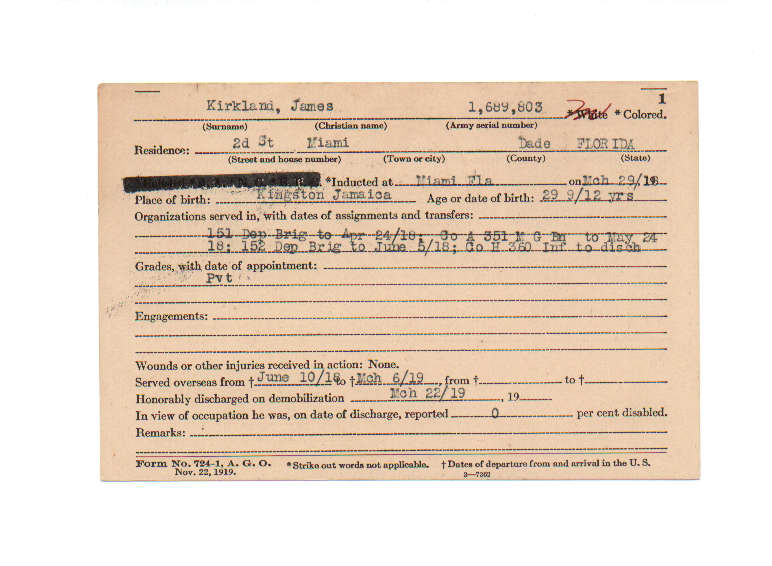 1
Kirkland, James 1,689,803 *White *Colored.
(Surname) (Christian name) (Army serial number)
Residence: 2d St Miami Dade FLORIDA
(Street and house number) (Town or city) (County) (State)
*Inducted at Miami Fla on Mch 29/18
Place of birth: Kingston Jamaica Age or date of birth: 29 9/12 yrs
Organizations served in, with dates of assignments and transfers:
151 Dep Brig to Apr 24/18; Co A 351 M G Bn to May 24
18; 152 Dep Brig to June 5/18; Co H 360 Inf to disch
Grades, with date of appointment:
Pvt
Engagements:
Wounds or other injuries received in action: None.
Served overseas from † June 10/18 to † Mch 6/19, from † to †
Honorably discharged on demobilization Mch 22/19, 19
In view of occupation he was, on date of discharge, reported 0 per cent disabled.
Remarks:
Form No. 724-1, A. G. O. *Strike out words not applicable. † Dates of departure from and arrival in the U. S.
Nov. 22, 1919. 3—7302